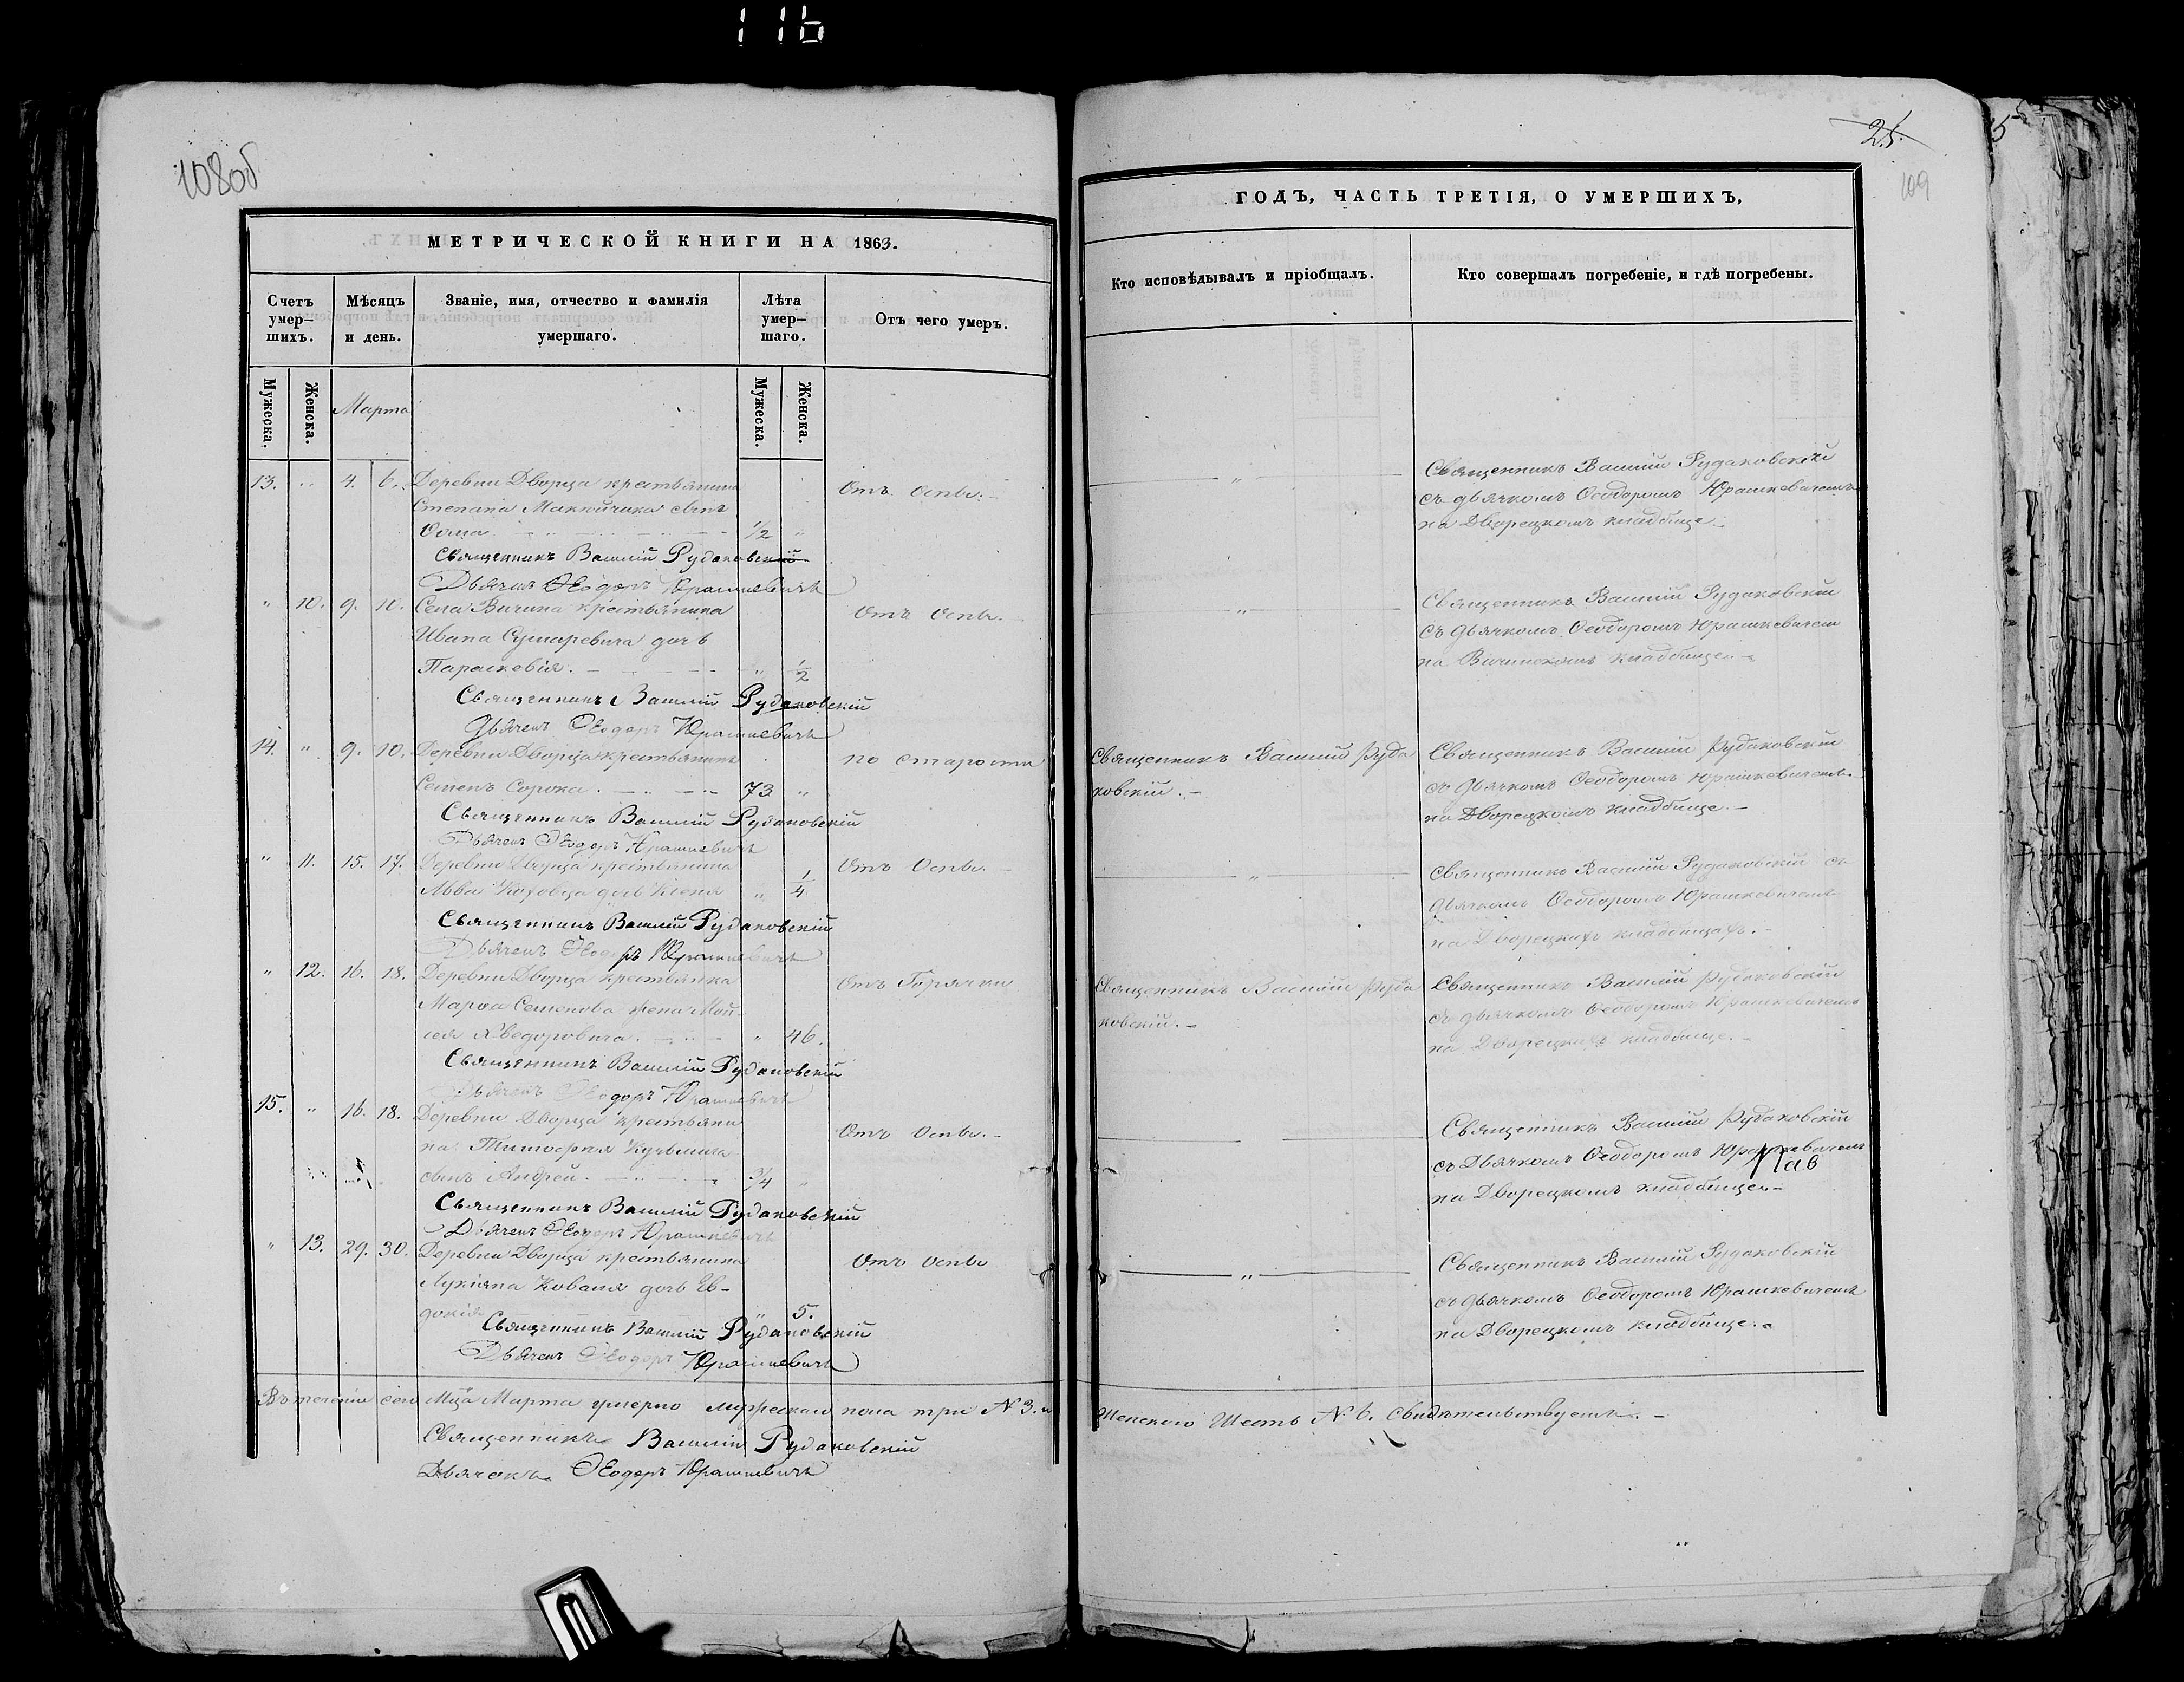 116
108об
МЕТРИЧЕСКОЙ КНИГИ НА 1863.
Счетъ умер-шихъ.
Мѣсяцъ и день.
Званіе, имя, отчество и фамилія умершаго.
Лѣта умер-шаго.
Отъ чего умеръ.
Мужеска.
Женска.
Марта
Мужеска.
Женска.
13. " 4. 6. Деревни Дворца крестьянина Отъ Оспы.
Степана сынъ
Ѳома 1/2 "
Священникъ Василій Рудаковскій
Дьячекъ Ѳеодоръ Юрашкевичъ
" 10. 9. 10. Села Вичина крестьянина Отъ Оспы.
Ивана дочь
Параскевія. " 1/2
Священникъ Василій Рудаковскій
Дьячекъ Ѳеодоръ Юрашкевичъ
14. " 9. 10. Деревни Дворца крестьянинъ по старости
Семенъ Сорока. 73 "
Священникъ Василій Рудаковскій
Дьячекъ Ѳеодоръ Юрашкевичъ
" 11. 15. 17. Деревни Дворца крестьянина Отъ Оспы.
Льва дочь " 1/4
Священникъ Василій Рудаковскій
Дьячекъ Ѳеодоръ Юрашкевичъ
" 12. 16. 18. Деревни Дворца крестьянка Отъ Горячки
Марѳа Семенова жена Мои-
сея " 46.
Священникъ Василій Рудаковскій
Дьячекъ Ѳеодоръ Юрашкевичъ
15. " 16. 18. Деревни Дворца крестьяни Отъ Оспы.
на Тимоѳея
сынъ Андрей. 3/4 "
Священникъ Василій Рудаковскій
Дьячекъ Ѳеодоръ Юрашкевичъ
" 13. 29. 30. Деревни Дворца крестьянина Отъ Оспы
Лукіяна Коваля дочь Ев-
докія " 5.
Священникъ Василій Рудаковскій
Дьячекъ Ѳеодоръ Юрашкевичъ
Въ теченіи сего Мца Марта умерло мужескаго пола три № 3. и
Священникъ Василій Рудаковскій
Дьячекъ Ѳеодоръ Юрашкевичъ
25.
109
ГОДЪ, ЧАСТЬ ТРЕТІЯ, О УМЕРШИХЪ,
Кто исповѣдывалъ и пріобщалъ.
Кто совершалъ погребеніе, и гдѣ погребены.
" Священникъ Василій Рудаковскій
съ дьячкомъ Ѳеодоромъ Юрашкевичемъ
на Дворецкомъ кладбище.
" Священникъ Василій Рудаковскій
съ дьячкомъ Ѳеодоромъ Юрашкевичем
на Вичинскомъ кладбище.
Священникъ Василій Руда Священникъ Василій Рудаковскій
ковскій. съ дьячкомъ Ѳеодоромъ Юрашкевичемъ
на Дворецкомъ кладбище.
" Священникъ Василій Рудаковскій съ
дьячкомъ Ѳеодоромъ Юрашкевичемъ
на Дворецкихъ кладбищахъ.
Священникъ Василій Руда Священникъ Василій Рудаковскій
ковскій. съ дьячкомъ Ѳеодоромъ Юрашкевичемъ
на кладбище.
Священникъ Василій Рудаковскій
съ Дьячкомъ Ѳеодоромъ Юрашкевичемъ
на Дворецкомъ кладбище.
" Священникъ Василій Рудаковскій
съ дьячкомъ Ѳеодоромъ Юрашкевичемъ
на Дворецкомъ кладбище.
Женскаго Шесть № 6. Свидѣтельствуемъ.